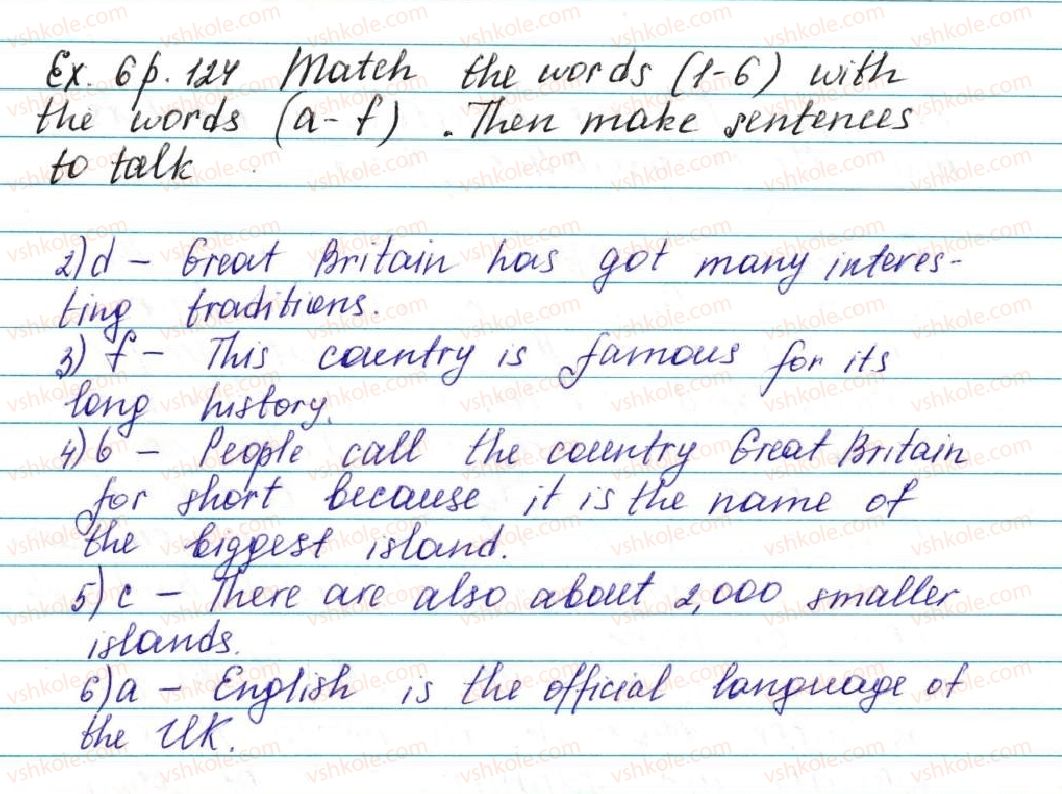 Ex. 6 p. 124 Match the words (1-6) with
the words (a-f). Then make sentences
to talk
2) d - Great Britain has got many interes-
ting traditions.
3) f - This country is famous for its
long history.
4) b - People call the country Great Britain
for short because it is the name of
the biggest island.
5) c - There are also about 2,000 smaller
islands.
6) a - English is the official language of
the UK.